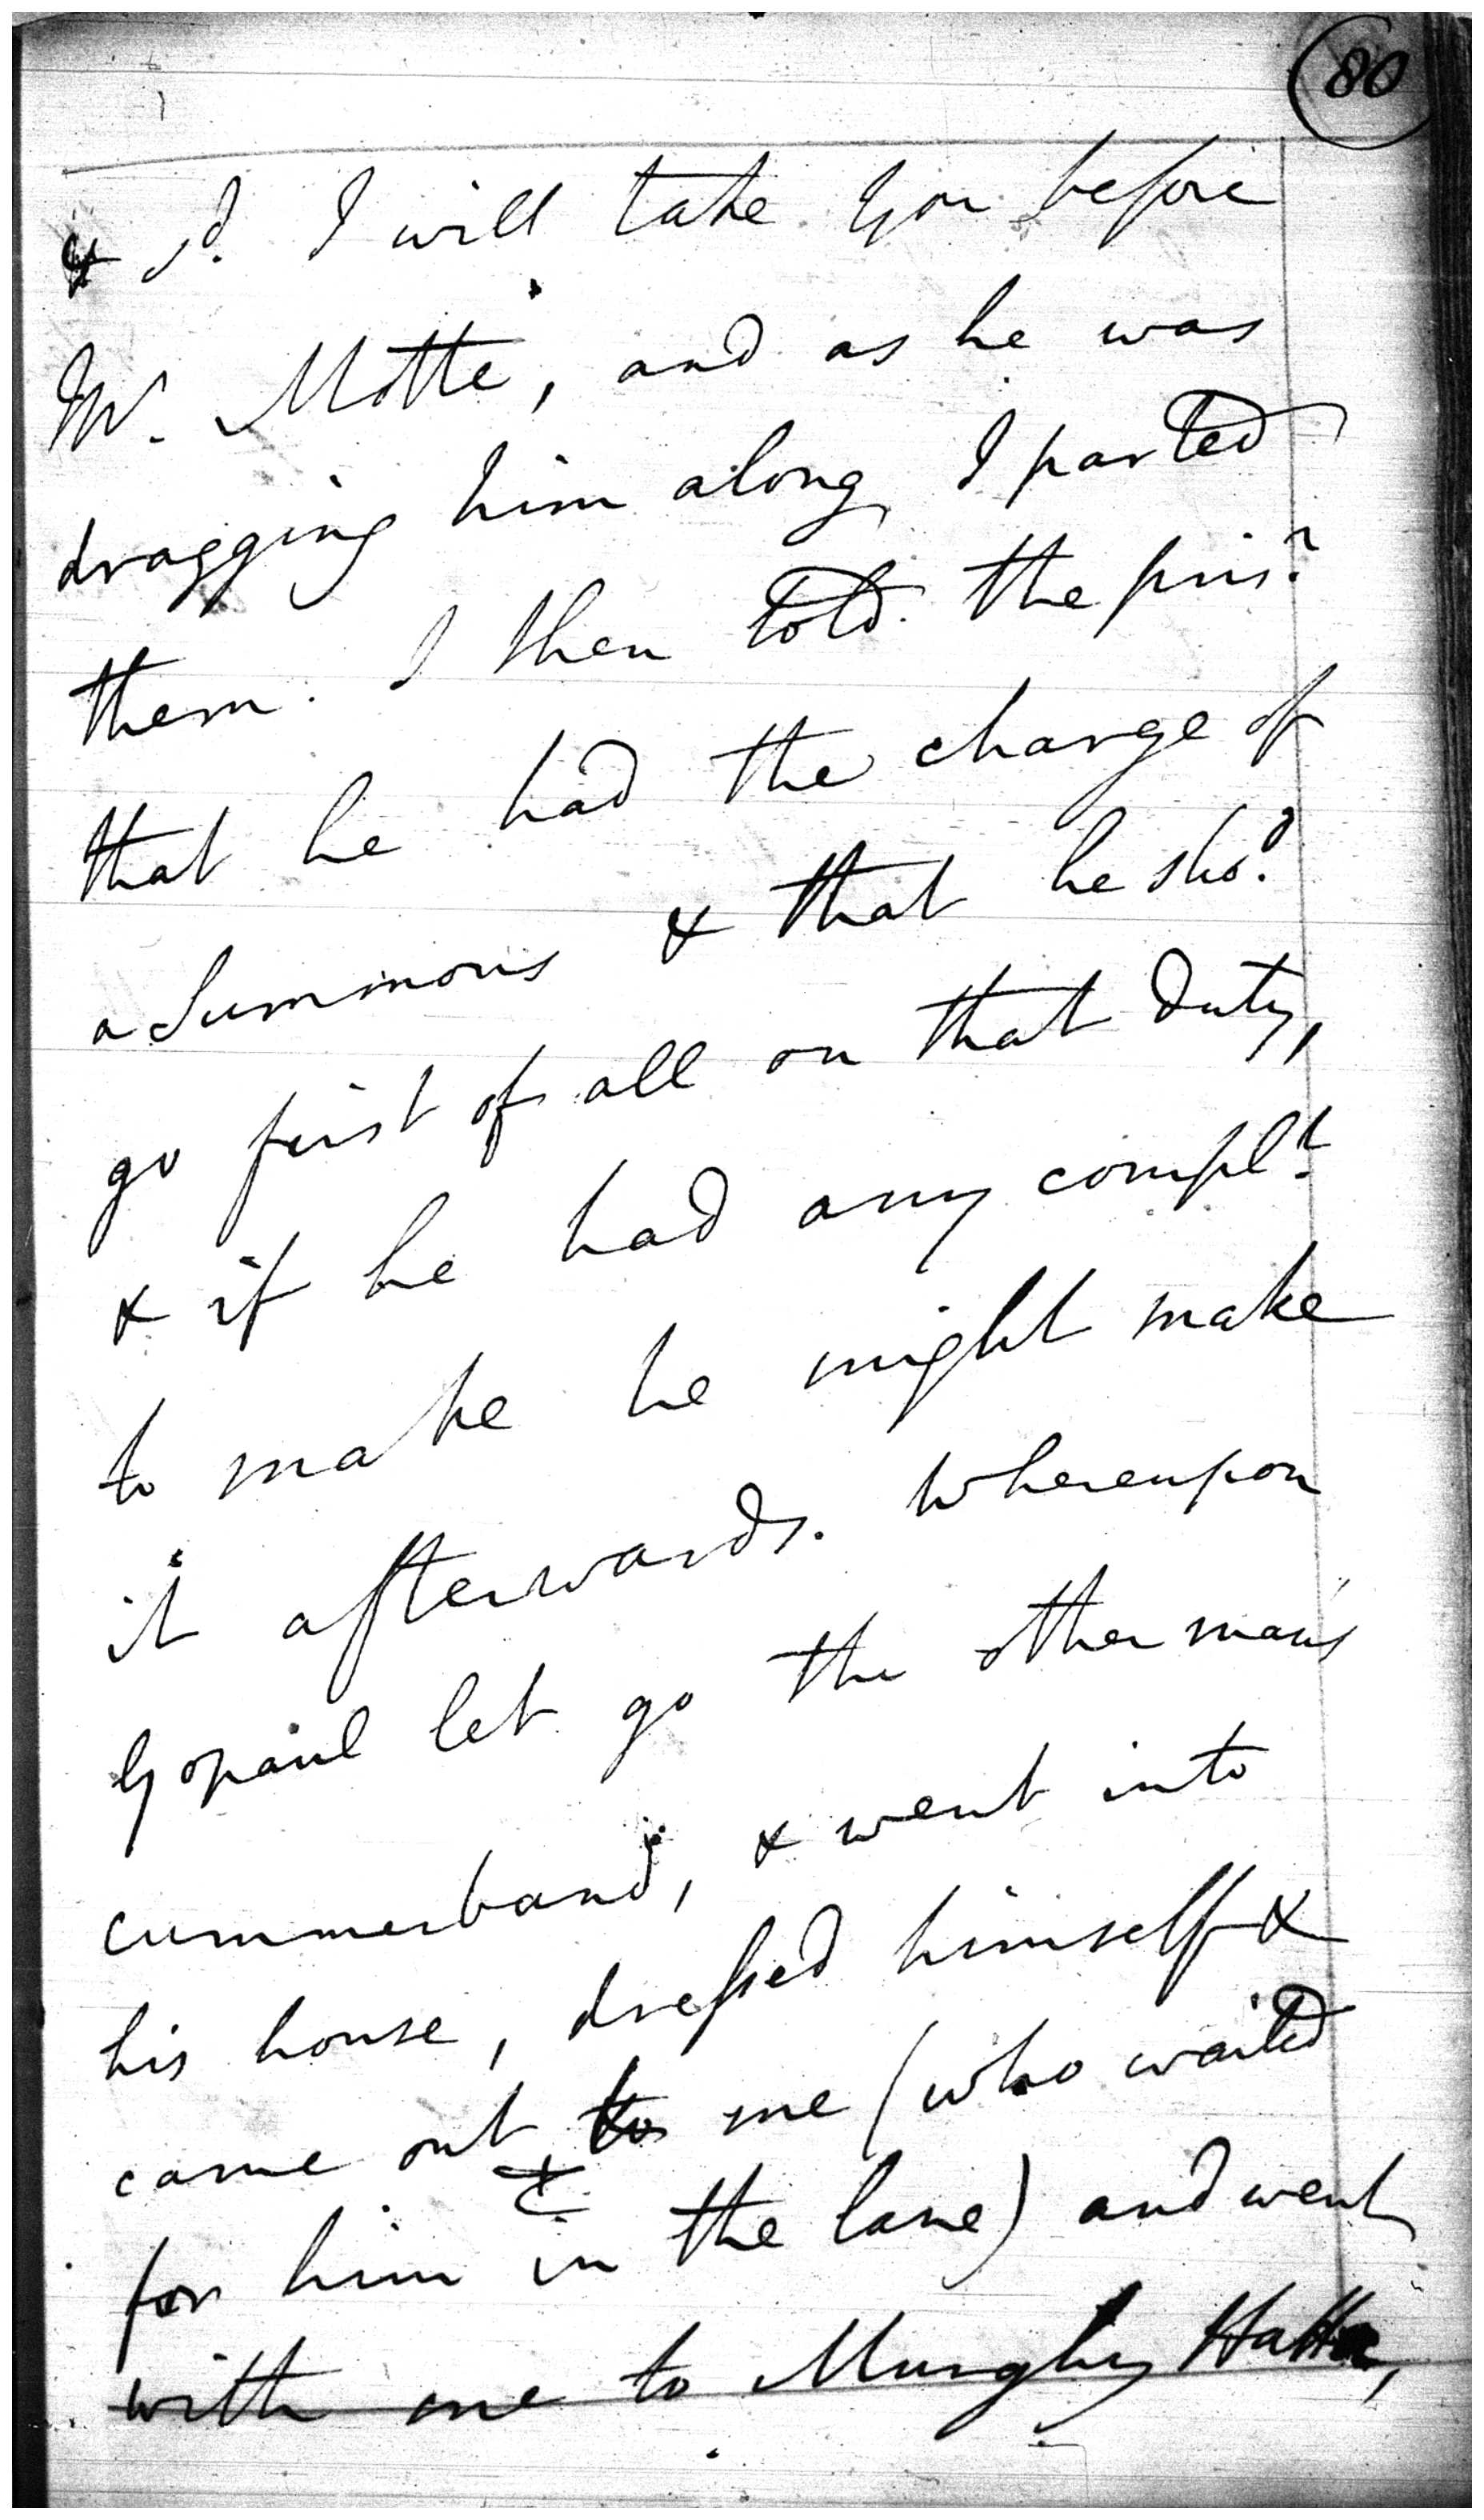 80
& sd. I will take you before
Mr. Motte, and as he was
dragging him along I parted
them. I then told the prisr.
that he had the charge of
a Summons & that he shod.
go first of all on that duty,
& if he had any complt.
to make he might make
it afterwards. Whereupon
Gopaul let go the other man's
cummerband, & went into
his house, dressed himself &
came out to me (who waited
for him in the lane) and went
with me to Murghy Hatta,